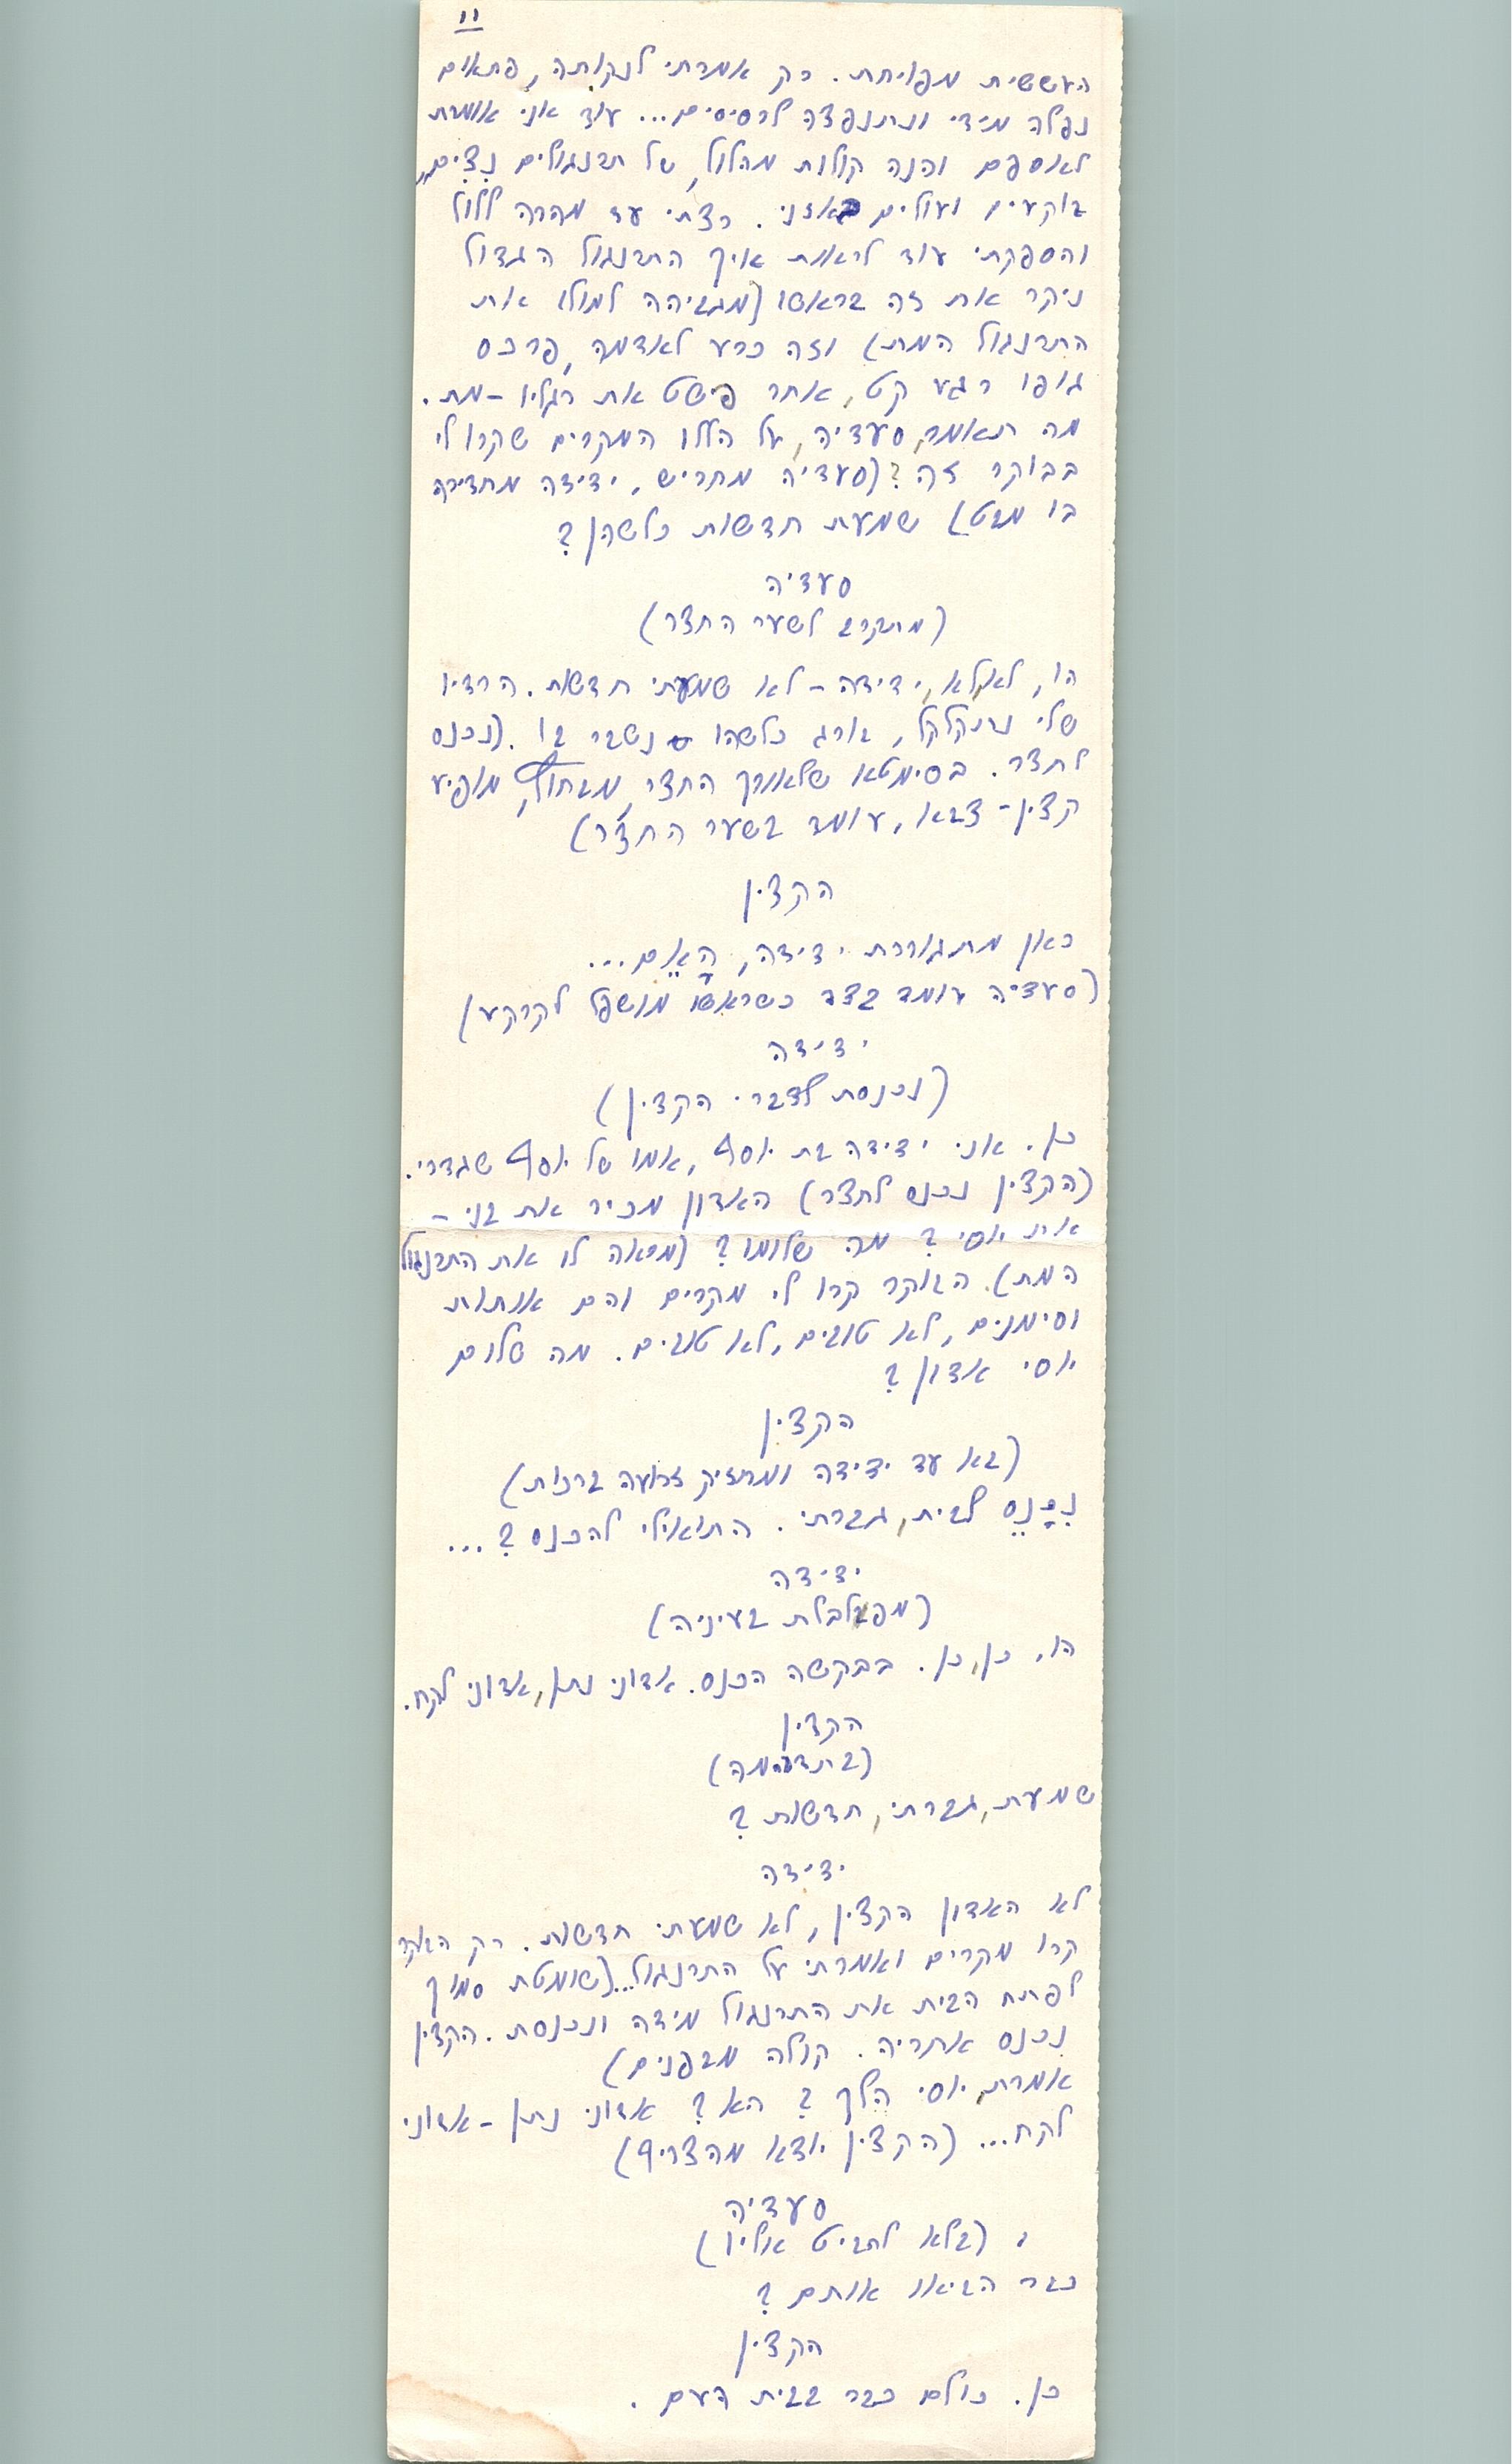 11
העששית מפויחת. רק אמרתי לנקותה, פתאום
נפלה מידי ונתנפצה לרסיסים... עוד אני אומרת
לאוספם והנה קולות מהלול, של תרנגולים נִצִּים,
בוקעים ועולים באזני. רצתי עד מהרה ללול
והספקתי עוד לראות איך התרנגול הגדול
ניקר את זה בראשו (מגביהה למולו את
התרנגול המת) וזה כרע לאדמה, פרכס
גופו רגע קט, אחר פישט את רגליו - מת.
מה תאמר, סעדיה, על הללו המקרים שקרו לי
בבוקר זה? (סעדיה מחריש, ידידה מחדירה
בו מבט) שמעת חדשות כלשהן?
סעדיה
(מתקרב לשער החצר)
הו, לא, לא, ידידה - לא שמעתי חדשות. הרדיו
שלי נתקלקל, בורג כלשהו נשבר בו. (נכנס
לחצר. בסימטא שלאורך החצר, מבחוץ, מופיע
קצין-צבא, עומד בשער החצר)
הקצין
כאן מתגוררת ידידה, הָאֵם...
(סעדיה עומד בצד כשראשו מושפל לקרקע)
ידידה
(נכנסת לדברי הקצין)
כן. אני ידידה בת יוסף, אמו של יוסף שגדרי.
(הקצין נכנס לחצר) האדון מכיר את בני -
את יוסי? מה שלומו? (מראה לו את התרנגול
המת). הבוקר קרו לי מקרים והם אותות
וסימנים, לא טובים, לא טובים. מה שלום
יוסי אדון?
הקצין
(בא עד ידידה ומחזיק זרועה ברכות)
נִכָּנֵס לבית, גברתי. התואילי להכנס?...
ידידה
(מפלבלת בעיניה)
הו, כן, כן. בבקשה הכנס. אדוני נתן, אדוני לקח.
הקצין
(בתדהמה)
שמעת, גברתי, חדשות?
ידידה
לא האדון הקצין, לא שמעתי חדשות. רק הבוקר
קרו מקרים ואמרתי על התרנגול...(שומטת סמוך
לפתח הבית את התרנגול מידה ונכנסת. הקצין
נכנס אחריה. קולה מבפנים)
אומרת, יוסי הלך? הא? אדוני נתן - אדוני
לקח... (הקצין יוצא מהצריף)
סעדיה
(בלא להביט אליו)
כבר הביאו אותם?
הקצין
כן. כולם כבר בבית העם.